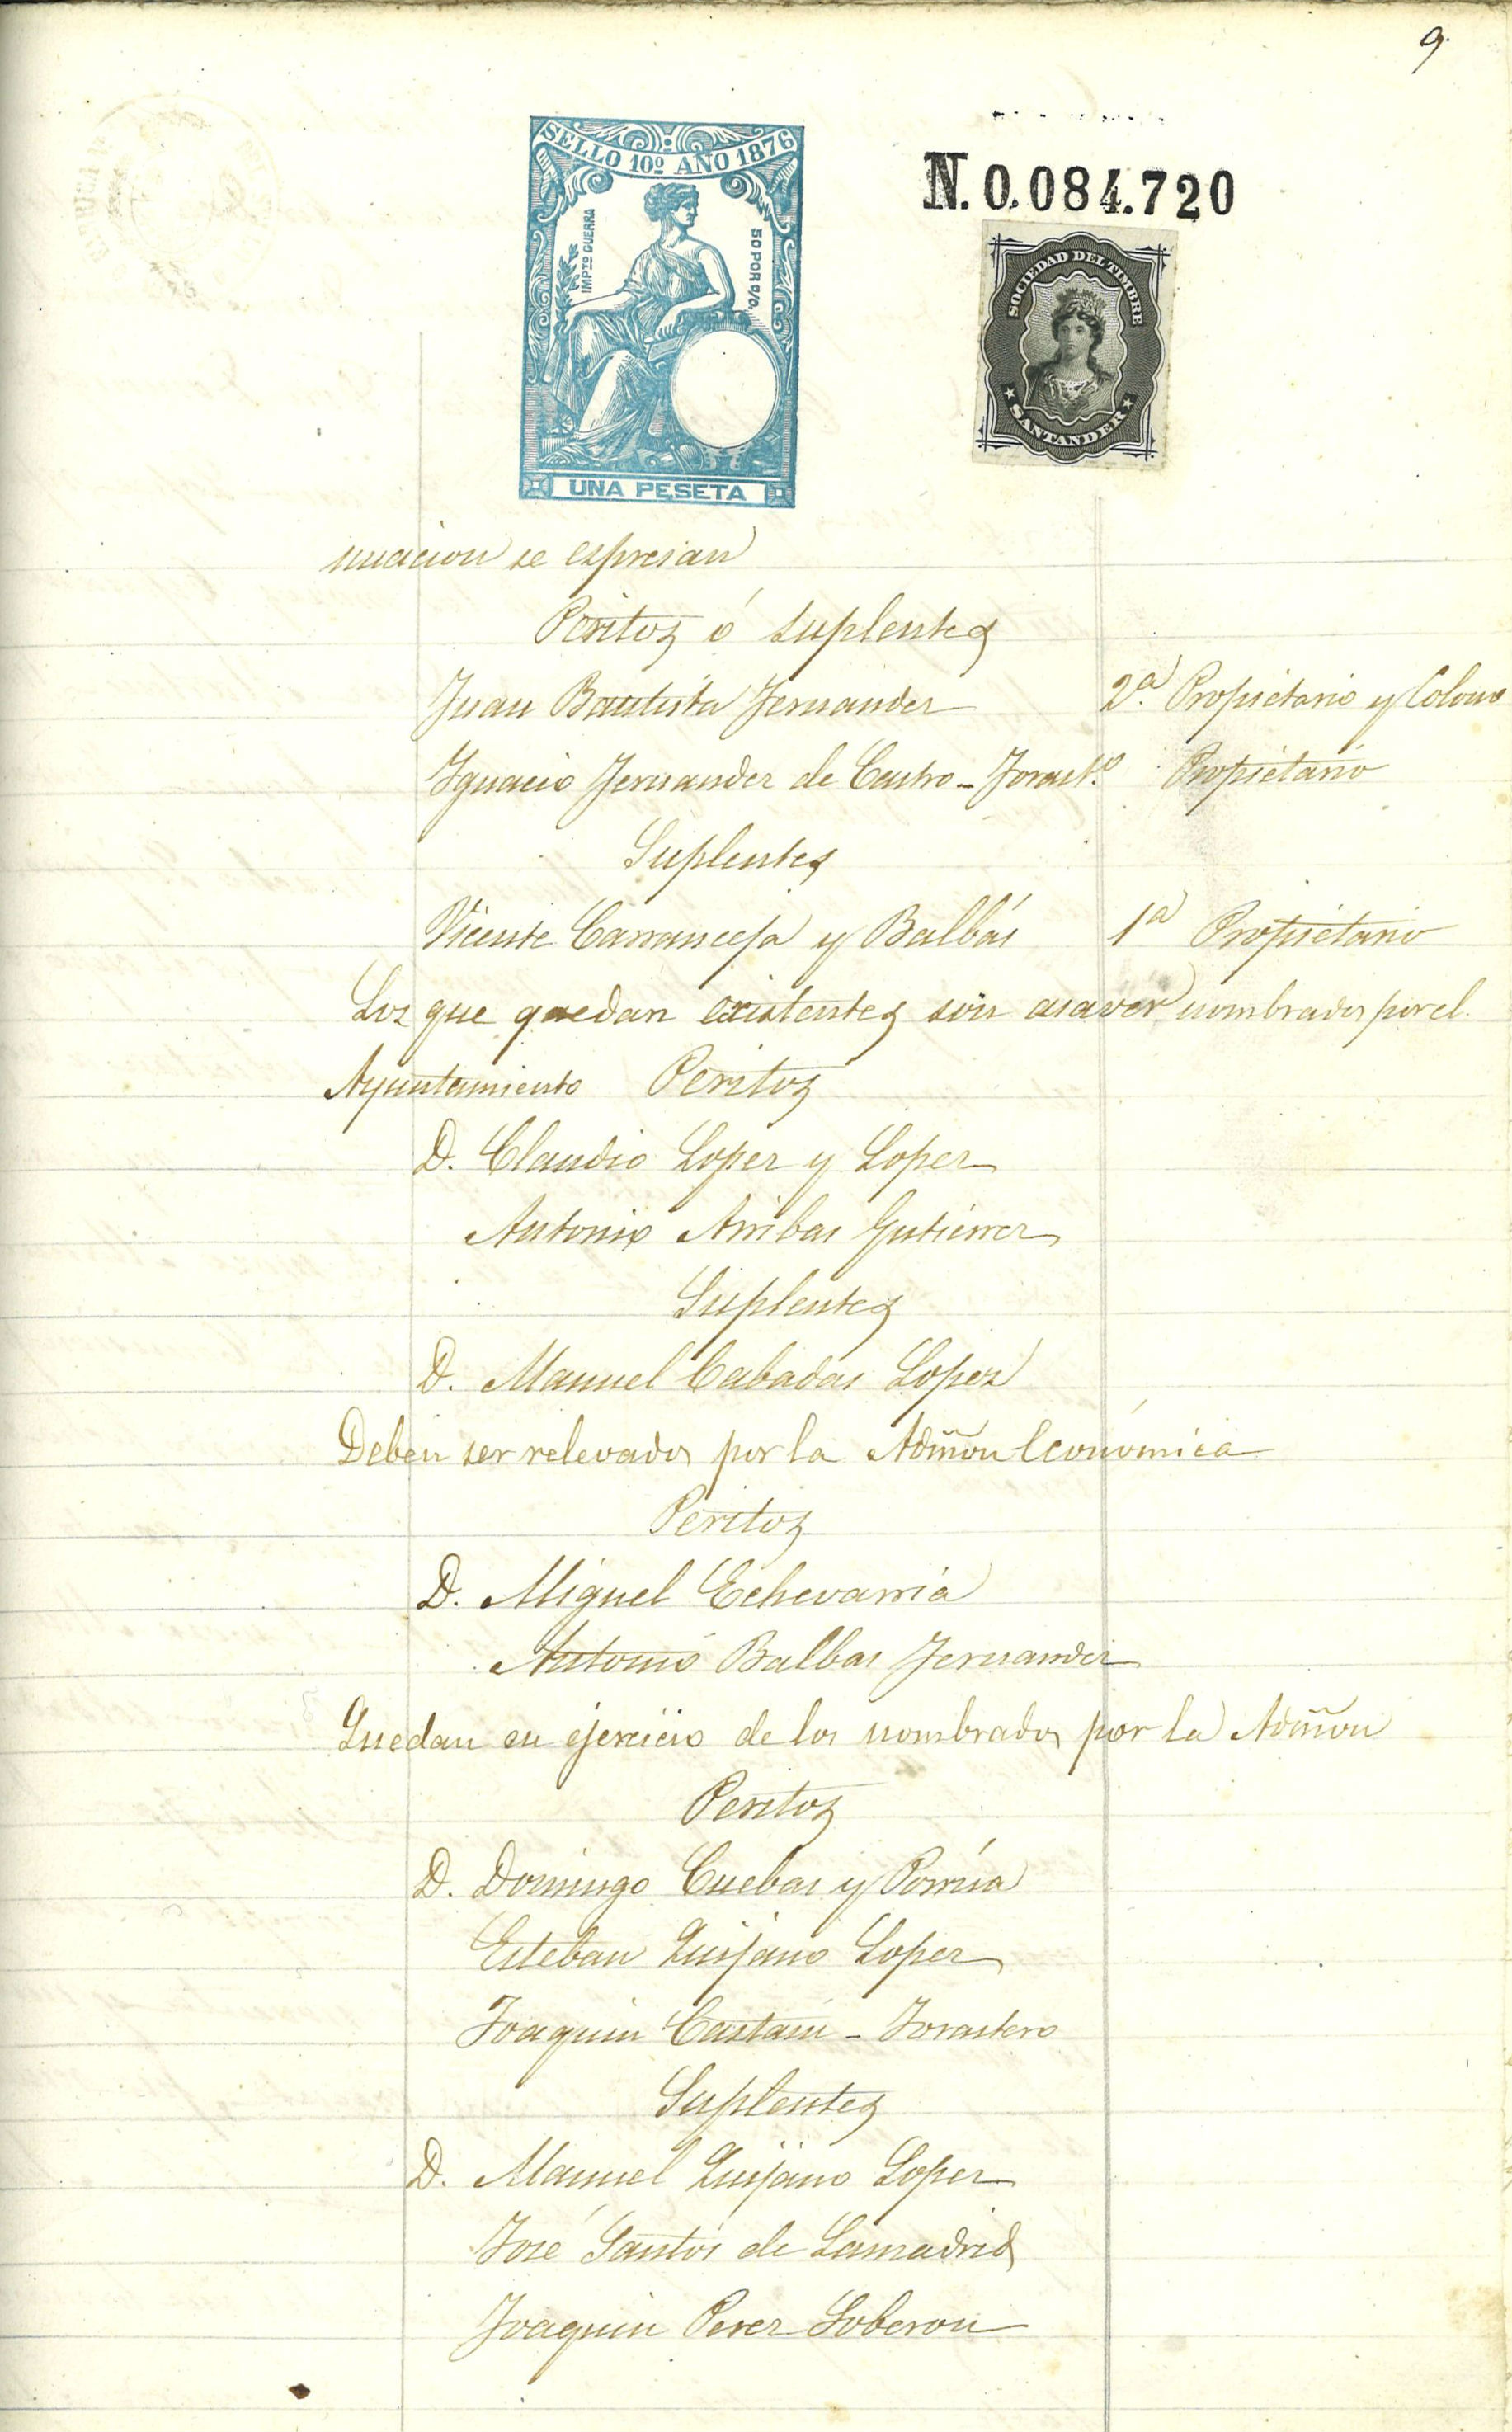 9.
SELLO 10º AÑO 1876
IMPTO GUERRA
50 POR 0/0.
UNA PESETA
N. 0.084.720
SOCIEDAD DEL TIMBRE
SANTANDER
nuacion se espresan
Peritos ó suplentes
Juan Bautista Fernandez 2.ª Propietario y Colono
Ygnacio Fernandez de Castro - Forast.º Propietario
Suplentes
Vicente Carranceja y Balbás 1ª Propietario
Los que quedan existentes son asaver nombrados por el
Ayuntamiento Peritos
D. Claudio Lopez y Lopez
Antonio Arribas Gutiérrez
Suplentes
D. Manuel Cabadas Lopez
Deben ser relevados por la Admõn Económica
Peritos
D. Miguel Echevarria
Antonio Balbas Fernandez
Quedan en ejercicio de los nombrados por la Admõn
Peritos
D. Domingo Cuebas y Porrúa
Esteban Quijano Lopez
Joaquin Castañ - Forastero
Suplentes
D. Manuel Quijano Lopez
José Santos de Lamadrid
Joaquin Perez Soberon